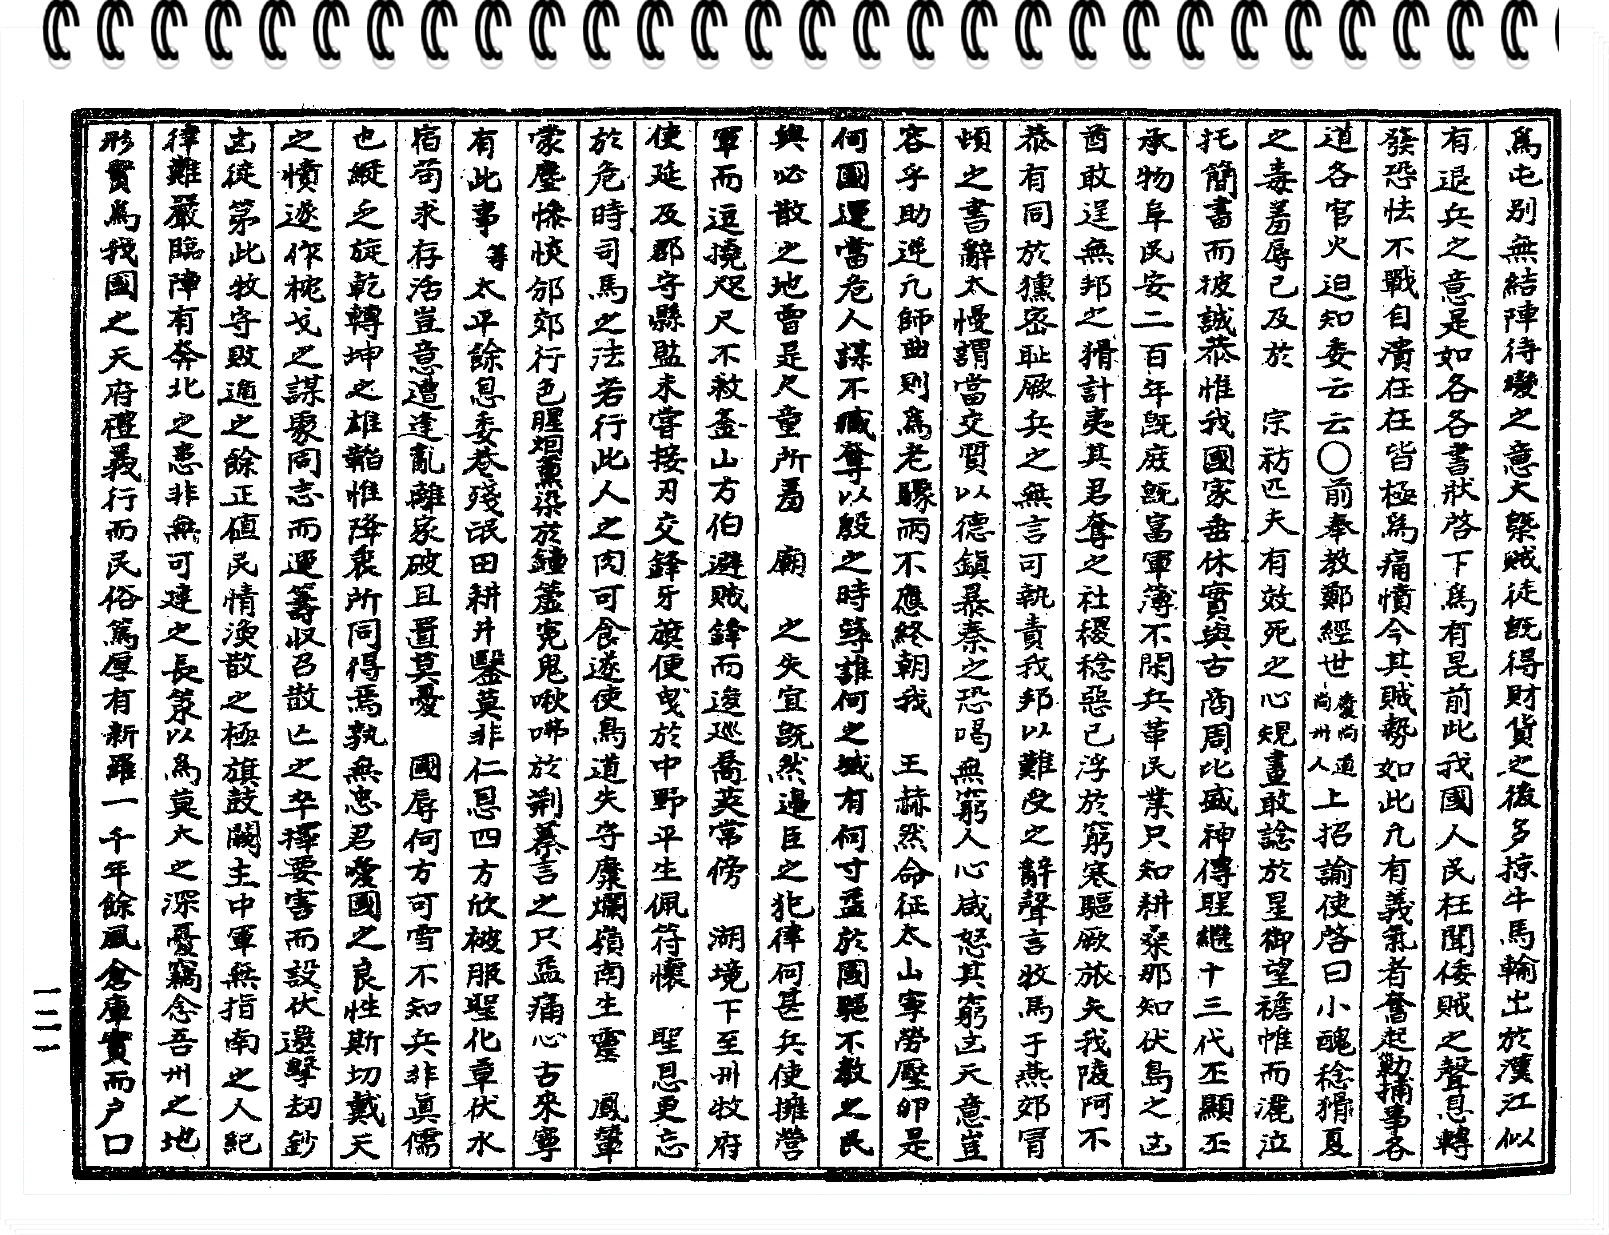 爲屯別無結陣待變之意大槩賊徒旣得財貨之後多掠牛馬輸出於漢江似
有退兵之意是如各各書狀啓下爲有昆前此我國人民枉聞倭賊之聲息轉
發恐怯不戰自潰在在皆極爲痛憤今其賊勢如此凡有義氣者奮起勦捕事各
道各官火迫知委云云〇前奉教鄭經世慶尚道尚州人上招諭使啓曰小醜稔猾夏
之毒羞辱已及於 宗祊匹夫有效死之心規畫敢諗於星御望襜帷而灑泣
托簡書而披誠恭惟我國家垂休實與古商周比盛神傳聖繼十三代丕顯丕
承物阜民安二百年旣庭旣富軍簿不閑兵革民業只知耕桑那知伏島之凶
酋敢逞無邦之猾計夷其君奪之社稷稔惡已浮於窮寒驅厥旅夫我陵阿不
恭有同於獯密耻厥兵之無言可執責我邦以難受之辭聲言牧馬于燕郊冒
頓之書辭太慢謂當交質以德鎭暴秦之恐喝無窮人心咸怒其窮凶天意豈
容乎助逆凡師曲則爲老驟雨不應終朝我 王赫然命征太山寧勞壓卵是
何國運當危人謀不臧奪以殷之時辱誰何之城有何寸益於國驅不敎之民
與必散之地曾是尺童所羞 廟 之失宜旣然邊臣之犯律何甚兵使擁營
軍而逗撓咫尺不救釜山方伯避賊鋒而逡巡喬英常傍 湖境下至州牧府
使延及郡守縣監未嘗接刃交鋒牙旗便曳於中野平生佩符懷 聖恩更忘
於危時司馬之法若行此人之肉可食遂使鳥道失守糜爛嶺南生靈 鳳輦
蒙塵慘悽邠郊行色腥烟薰染於鍾簴冤鬼啾啼於荊蓁言之只益痛心古來寧
有此事等太平餘息委巷殘氓田耕井鑿莫非仁恩四方欣被服聖化草伏水
宿苟求存活豈意遭逢亂離家破且置莫憂 國辱何方可雪不知兵非眞儒
也縱乏旋乾轉坤之雄韜惟降衷所同得焉孰無忠君愛國之良性斯切戴天
之憤遂作枕戈之謀褱同志而運籌收召散亡之卒擇要害而設伏邀擊刦鈔
凶徒第此牧守敗逋之餘正値民情渙散之極旗鼓闕主中軍無指南之人紀
律難嚴臨陣有奔北之患非無可建之長策以爲莫大之深憂竊念吾州之地
形實爲我國之天府禮義行而民俗篤厚有新羅一千年餘風倉庫實而戶口
二一